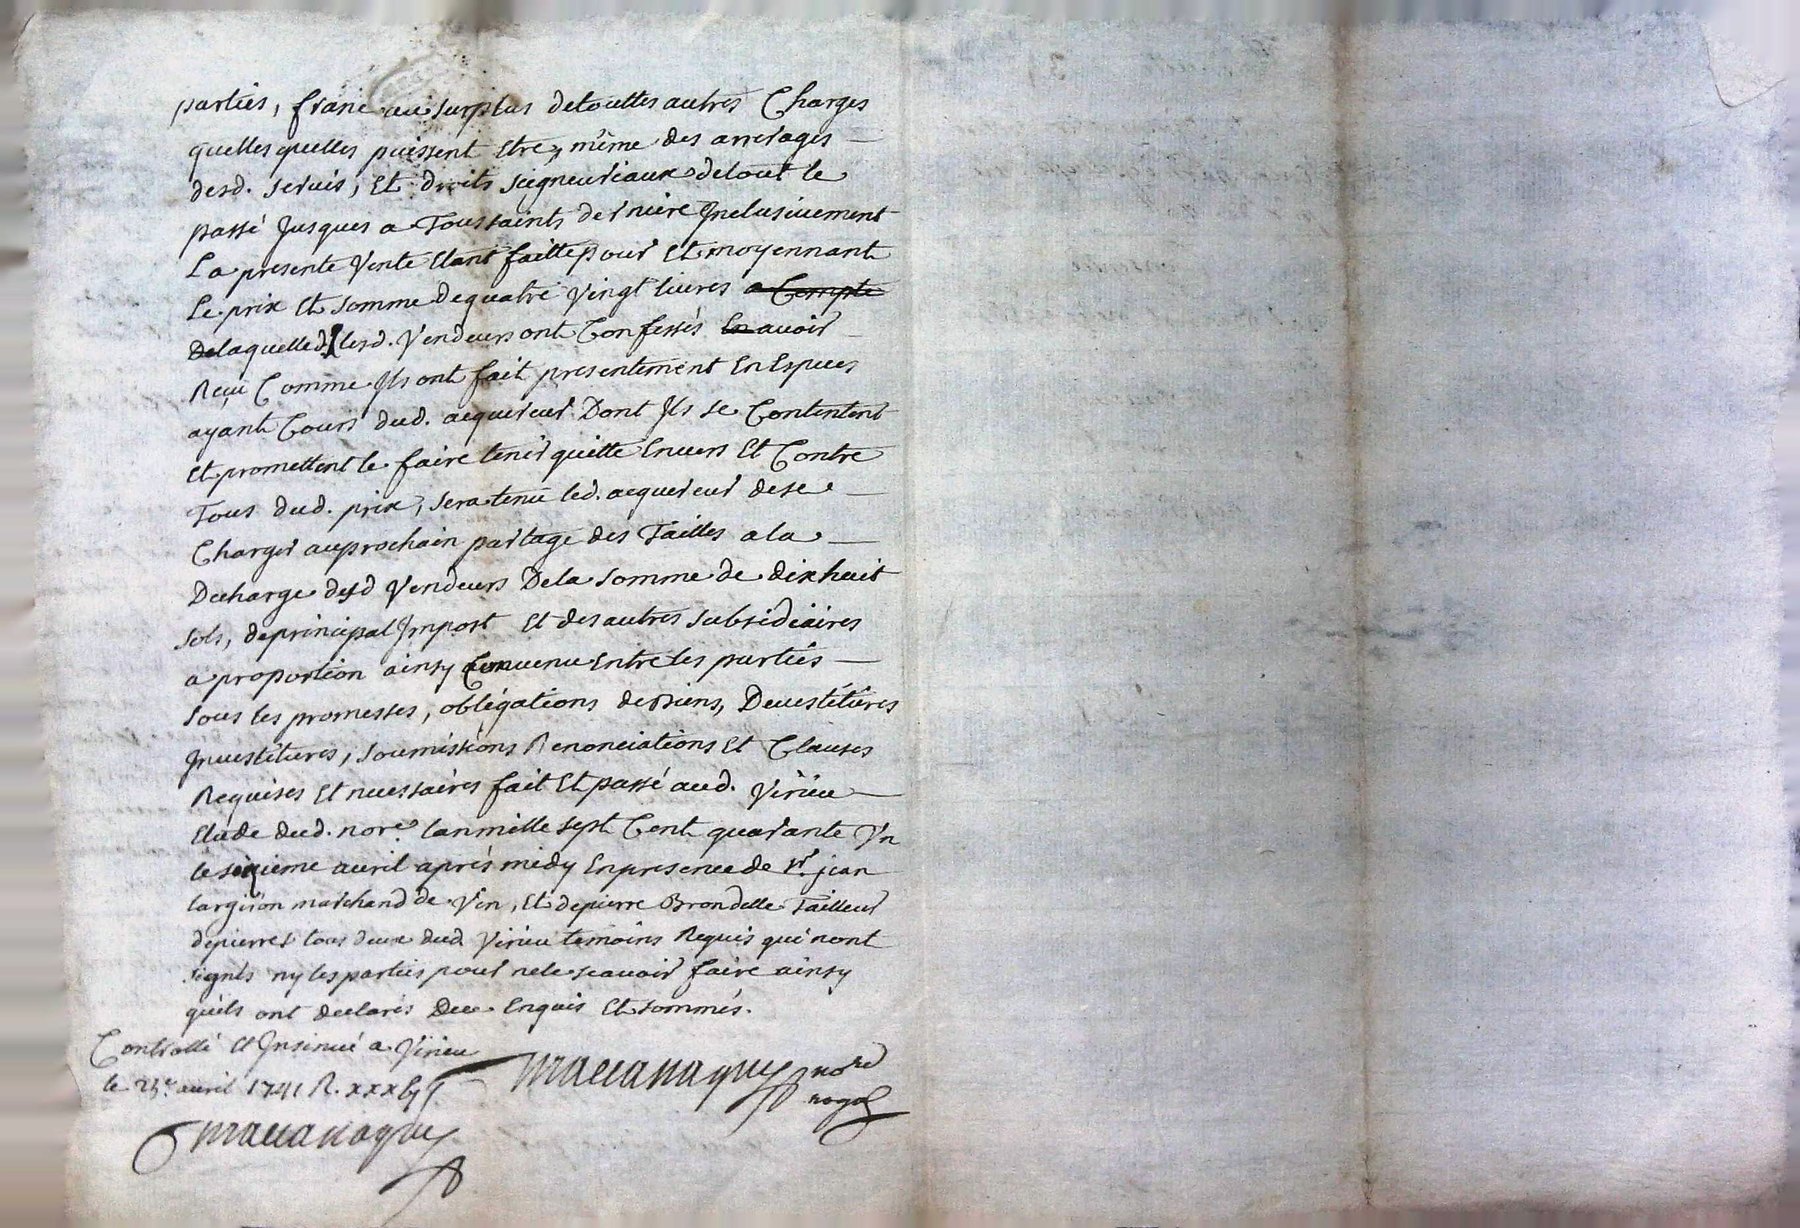 parties, franc au surplus detouttes autres Charges
quelles quelles puissent Etre, même des arrerages
desd. servis, Et droits seigneuriaux detout le
passé Jusques a Toussaints derniere Inclusivement
La presente Vente Etant faitte pour Et moyennant
Le prix Et somme dequatre Vingt livres a Compte
Delaquelle lesd. Vendeurs ont Confessés En avoir
Reçu Comme Ils ont fait presentement En Especes
ayant Cours dud. acquereur Dont Ils se Contentent
Et promettent le faire tenir quitte Envers Et Contre
Tous dud. prix, sera tenu led. acquereur dese
Charger auprochain partage des Tailles ala
Decharge desd Vendeurs Dela somme de dixhuit
sols, deprincipal Impost Et des autres subsidiaires
a proportion ainsy Convenu Entre les parties
sous les promesses, obligations de Biens, Devestitures
Investitures, soumissions Renonciations Et Clauses
Requises Et necessaires fait Et passé aud. Virieu
Etude dud. nore. lanmille sept Cent quarante Un
le sixieme avril après midy Enpresence de sr. jean
largiron marchand de Vin, Et depierre Brondelle Tailleur
depierres tous deux dud Virieu temoins Requis qui nont
signés ny les parties pour ne le scavoir faire ainsy
quils ont declarés Deue Enquis Et sommés.
Controllé Et Insinué a Virieu
le avril 1741 R.
nore
royal